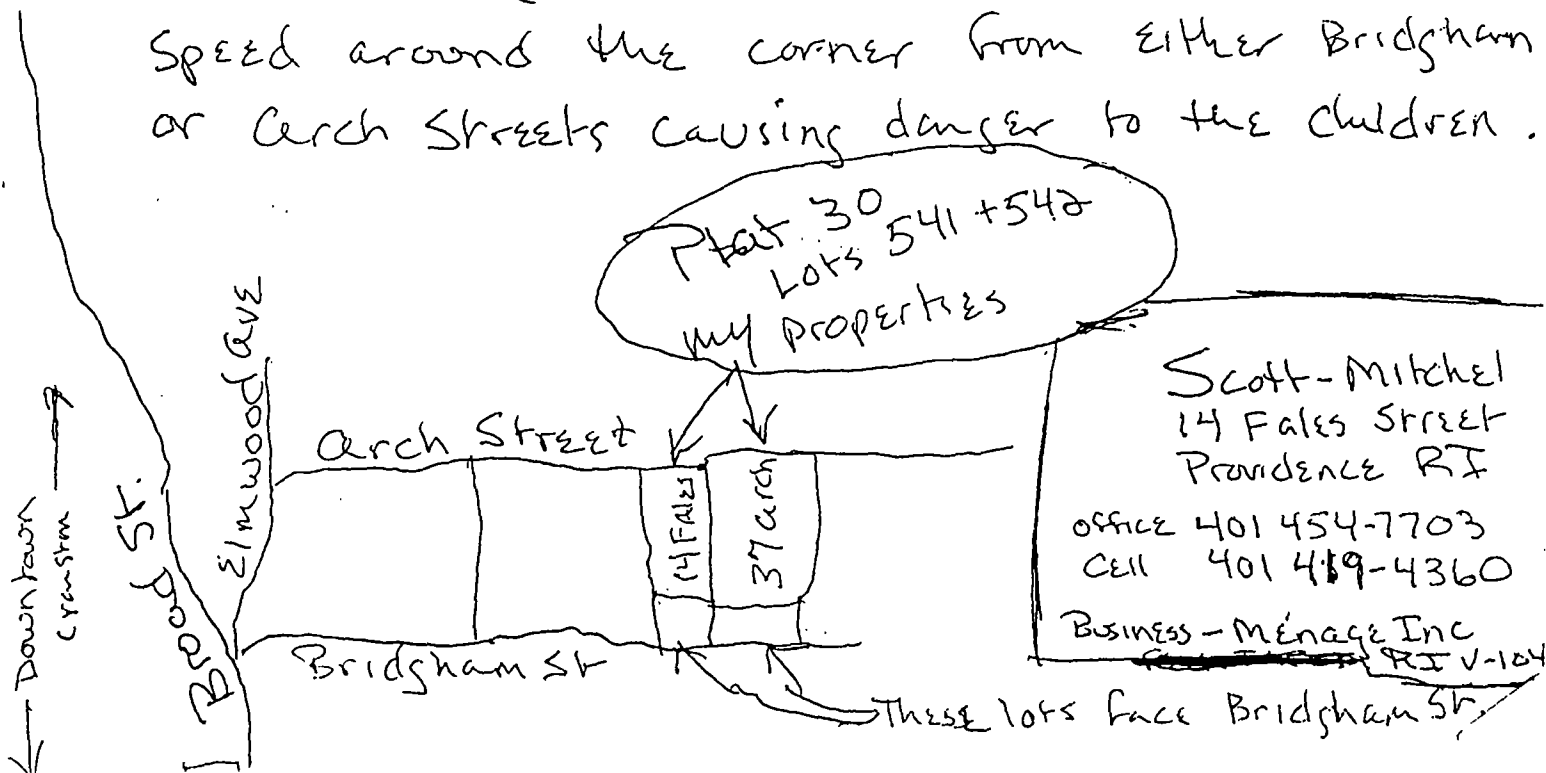 Speed around the corner from Either Bridgham
or Arch Streets causing danger to the children.
Plat 30
Lots 541 + 542
my properties
Elmwood Ave
Arch Street
14 Fales
37 Arch
Broad St.
← Downtown
Cranston →
Bridgham St
These lots face Bridgham St.
Scott-Mitchel
14 Fales Street
Providence RI
office 401 454-7703
Cell 401 419-4360
Business - Ménage Inc
RI V-104